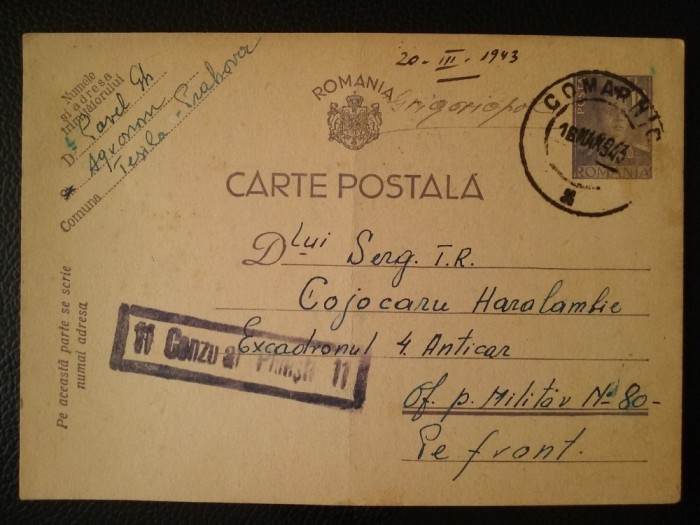 Numele
și adresa
trimițătorului
D. Pavel Gh
Agronom
Comuna Tesila - Prahova
20 - III - 1943
ROMANIA
Grigoriopol
COMARNIC
ROMANIA
CARTE POSTALĂ
Pe această parte se scrie
numai adresa
Dlui Serg. T.R.
Cojocaru Haralambie
Excadronul 4. Anticar
Of. p. Militar No 80-
Pe front.
11 11